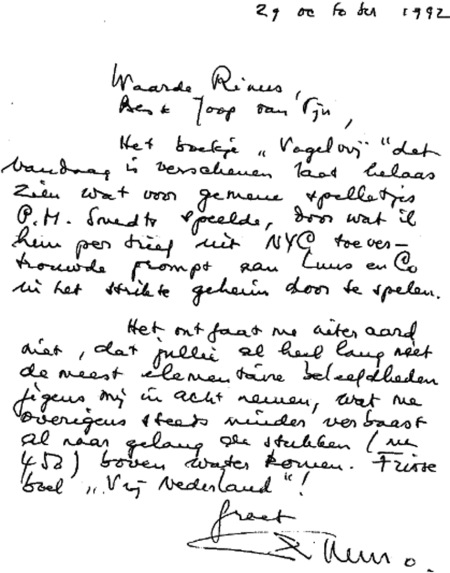 29 october 1992
Waarde Rinus,
Beste Joop van Tijn,
Het boekje „Vogelvrij" dat
vandaag is verschenen laat helaas
zien wat voor gemene spelletjes
P.M. Smedts speelde, door wat ik
hem per brief uit NYC toever-
trouwde prompt aan Luns en Co
in het strikte geheim door te spelen.
Het ontgaat me uiteraard
niet, dat jullie al heel lang niet
de meest elementaire beleefdheden
jegens mij in acht nemen, wat me
overigens steeds minder verbaast
al naar gelang de stukken (nu
450) boven water komen. Frisse
boel „Vrij Nederland"!
Groet